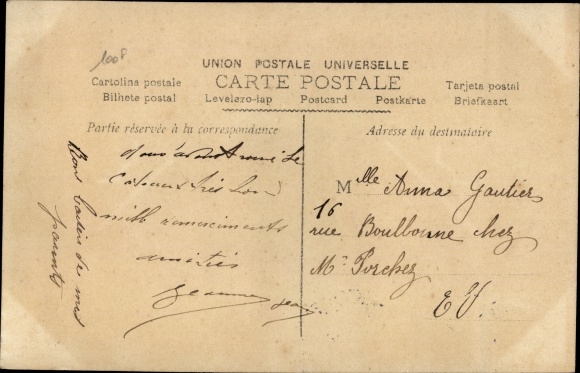 100F
UNION POSTALE UNIVERSELLE
CARTE POSTALE
Cartolina postale
Tarjeta postal
Bilhete postal Levelezo-lap Postcard Postkarte Briefkaart
Partie réservée à la correspondance
Adresse du destinataire
nous avons trouvé le
très bon
mille remerciments
amitiés
Jeanne Jean
Bons baisers de mes
parents
Mlle Anna Gautier
16
rue Boulbonne chez
Mr Porchez
EV.